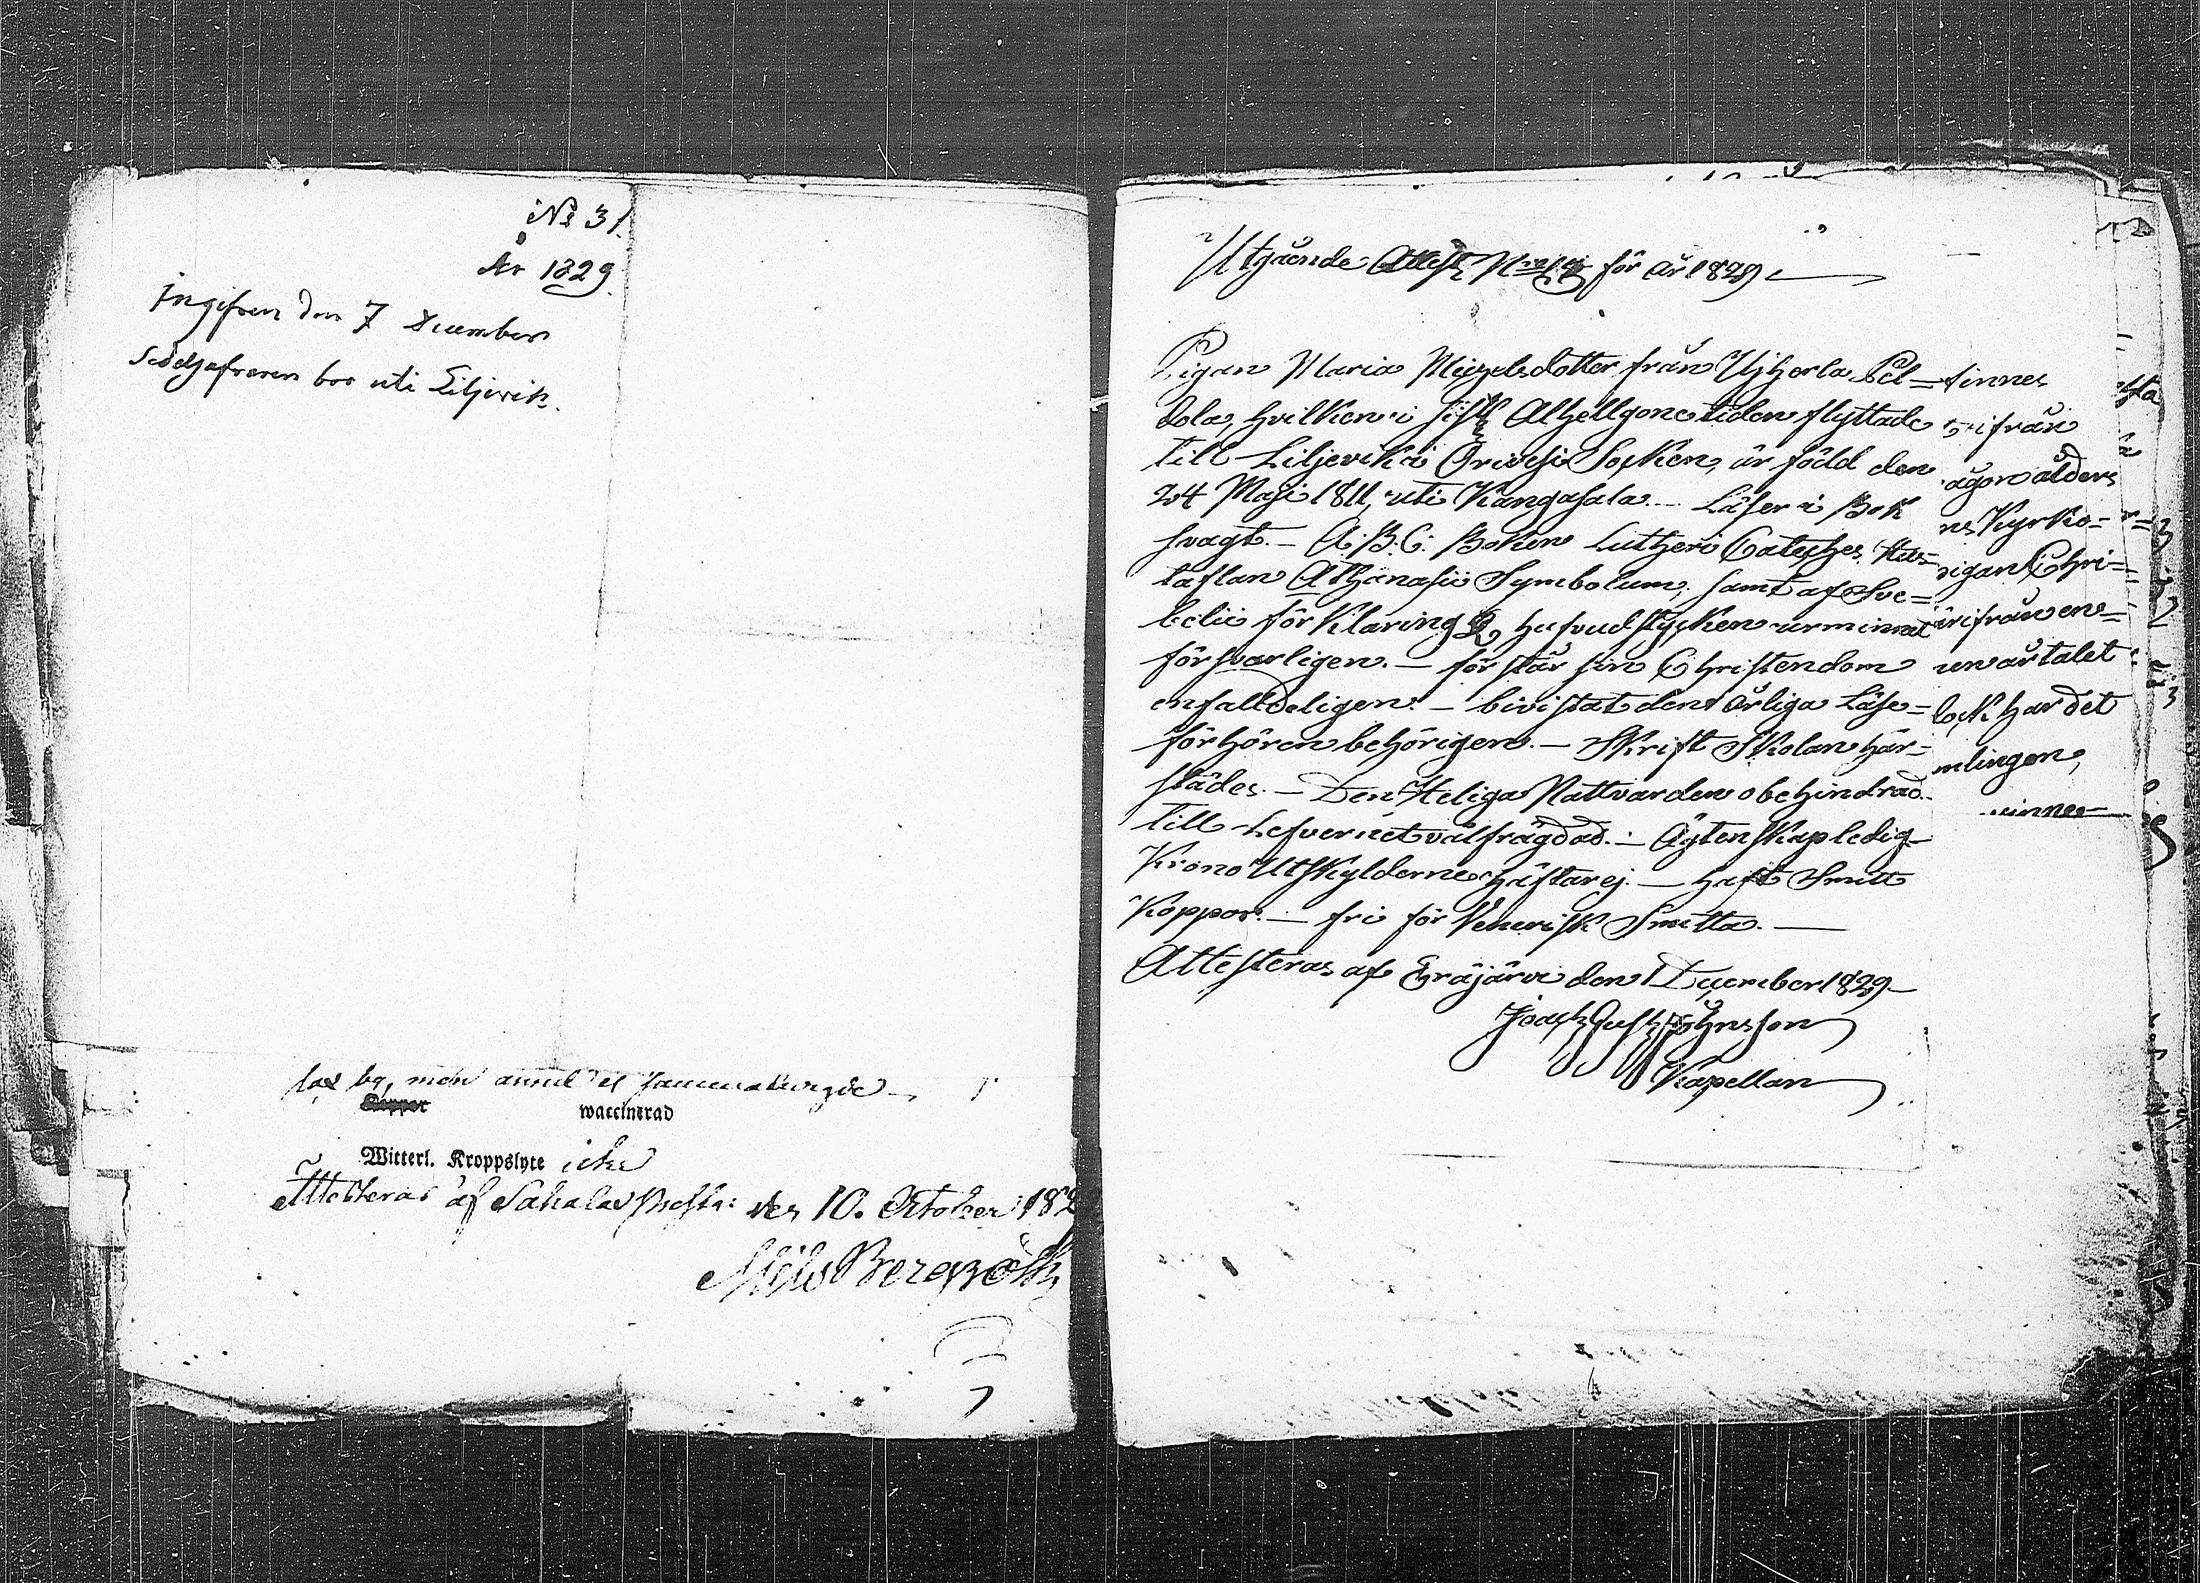 No 31.
År 1829.
Ingifven den 7 December
Sedelhafvaren bor uti Liljevik.
bq, men annu ej
Koppor waccinerad
Witterl. Kroppslyte icke
Attesteras af Sahalax den 10. October 182
Utgående Attest för år 1829
Pigan Maria Michelsdotter från Uiherla Pel=
dola, hvilken i sist Alhellgonetiden flyttade
till Liljevik i Orivesi Socken, är född den
24 Maji 1811, uti Kangasala. Läser i Bok
svagt. A.B.C. Boken Lutheri Catechés. Hus=
taflan Athanasii Symbolum, samt af Sve=
belii förklaring 2 hufvudstycken ur minnet
försvarligen. förstår sin Christendom
enfalldeligen. bivistat den årliga Läse=
förhören behörigen. Skrift Skolan här=
städes. Den Heliga Nattvarden obehindrad.
till Lefvernet välfrägdad. Ägtenskap ledig
Krono Utskylderne häftar ej. haft Smitt
Koppor. fri för Venerisk Smitta.
Attesteras af Eräjärvi den 1 December 1829
Johnsson
Kapellan
finnes
ifrån
ålders
Kyrko=
pigan Chri=
ärifrån en=
årtalet
har det
mlingen,